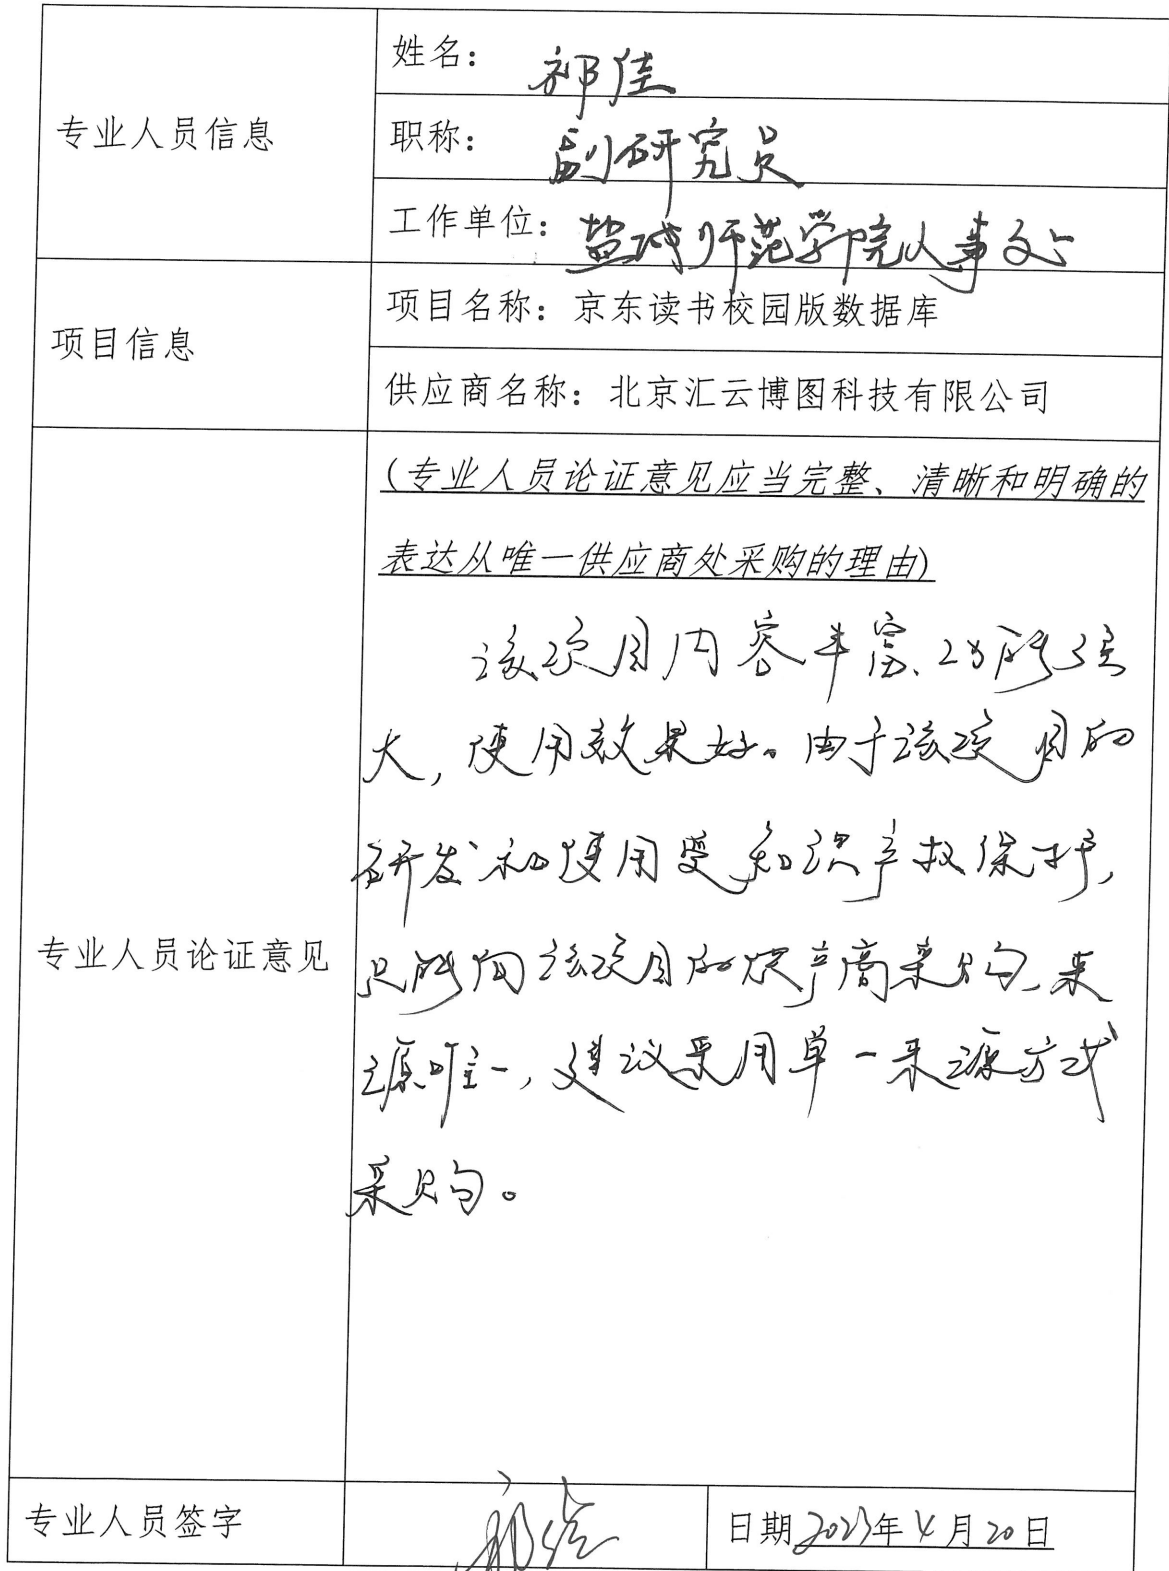 专业人员信息
姓名：祁佳
职称：副研究员
工作单位：盐城师范学院人事处
项目信息
项目名称：京东读书校园版数据库
供应商名称：北京汇云博图科技有限公司
专业人员论证意见
(专业人员论证意见应当完整、清晰和明确的
表达从唯一供应商处采购的理由)
该项目内容丰富、功能强
大，使用效果好。由于该项目的
研发和使用受知识产权保护，
只能向该项目的供产商采购，来
源唯一，建议采用单一来源方式
采购。
专业人员签字
祁佳
日期2023年4月20日